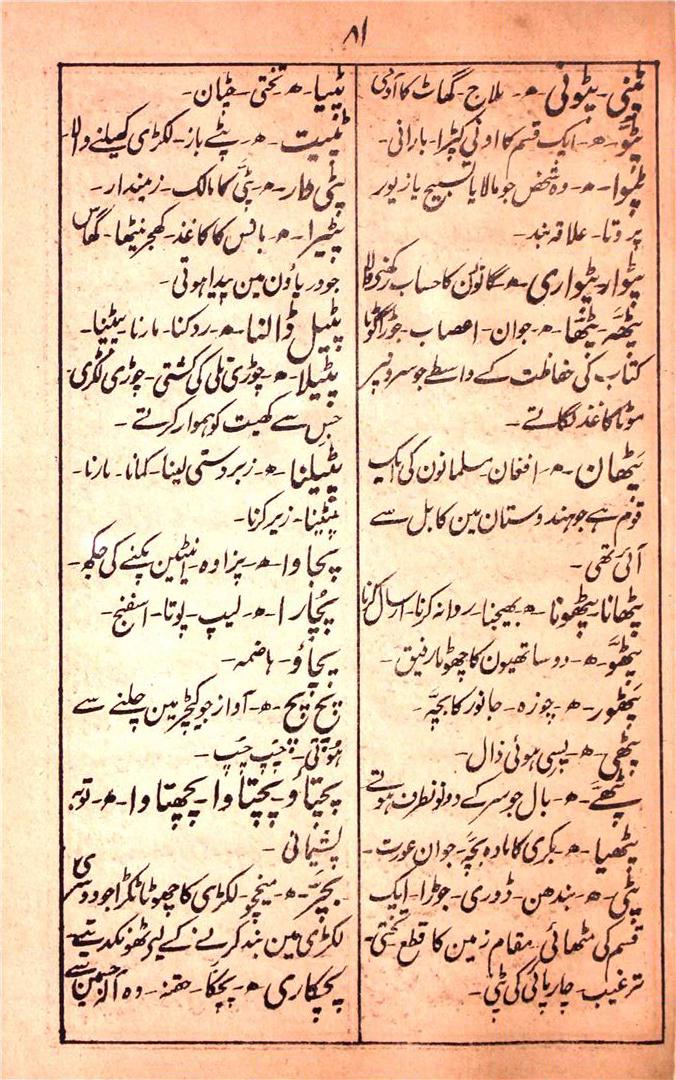 ۸۱
پٹنی۔ پٹونی ھ۔ ملاح۔ گھاٹ کا آدمی
پٹّو۔ ھ۔ ایک قسم کا اونی کپڑا۔ بارانی۔
پٹوا۔ ھ۔ وہ شخص جو مالا یا تسبیح یا زیور
پروتا۔ علاقہ بند۔
پٹوار۔ پٹواری۔ ھ۔ گانون کا حساب رکھنی والا
پٹھہ۔ پٹھا۔ ھ۔ جوان۔ اعصاب۔ چوڑا گوٹا
کتاب کی حفاظت کے واسطے جو سرونپر
موٹا کاغذ لگاتے۔
پٹھان۔ ھ۔ افغان۔ مسلمانون کی ایک
قوم ہے جو ہندوستان مین کابل سے
آئی تھی۔
پٹھانا۔ پٹھونا۔ ھ۔ بھیجنا۔ روانہ کرنا۔ ارسال کرنا
پٹھو۔ ھ۔ دو ساتھیون کا چھوٹا رفیق۔
پٹھور۔ ھ۔ چوزہ۔ جانور کا بچہ۔
پٹھی۔ ھ۔ پسی ہوئی ڈال۔
پٹھے۔ ھ۔ بال جو سر کے دونو نطرف ہوتے
پٹھیا۔ ھ۔ بکری کا مادہ بچہ۔ جوان عورت۔
پٹی۔ ھ۔ بندھن۔ ڈوری۔ جوڑا۔ ایک
قسم کی مٹھائی۔ مقام زمین کا قطع تختی۔
ترغیب۔ چارپائی کی پٹی۔
پٹیا۔ ھ۔ تختی۔ چٹان۔
پٹیت۔ ھ۔ پٹے باز۔ لکڑی کھیلنے والا۔
پٹی دار۔ ھ۔ پٹی کا مالک۔ زمیندار۔
پٹیرا۔ ھ۔ بانس کا کاغذ۔ گھاس
جو دریاؤن مین پیدا ہوتی۔
پٹیل ڈالنا۔ ھ۔ رد کرنا۔ مارنا پیٹنا۔
پٹیلا۔ ھ۔ چوڑی تلی کی کشتی۔ چوڑی لکڑی۔
جس سے کھیت کو ہموار کرتے۔
پٹیلنا۔ ھ۔ زبردستی لینا۔ کمانا۔ مارنا۔
پیٹنا۔ زیر کرنا۔
پجاوا۔ ھ۔ پزاوہ۔ اینٹین پکنے کی جگھ۔
پچارا۔ ھ۔ لیپ۔ پوتا۔ اسفنج۔
پچاؤ۔ ھاضمہ۔
پچ پچ۔ ھ۔ آواز جو کیچڑ مین چلنے سے
ہوتی۔ چپ چپ۔
پچتاؤ۔ پچتاوا۔ پچھتاوا۔ ھ۔ توبہ
پشیمانی۔
پچر۔ ھ۔ میخچو۔ لکڑی کا چھوٹا ٹکڑا جو دوسری
لکڑی مین بند کرنے کے لیے ٹھونکدیتے۔
پچکاری۔ ھ۔ پچکا۔ حقنہ۔ وہ آلہ جسمین سے